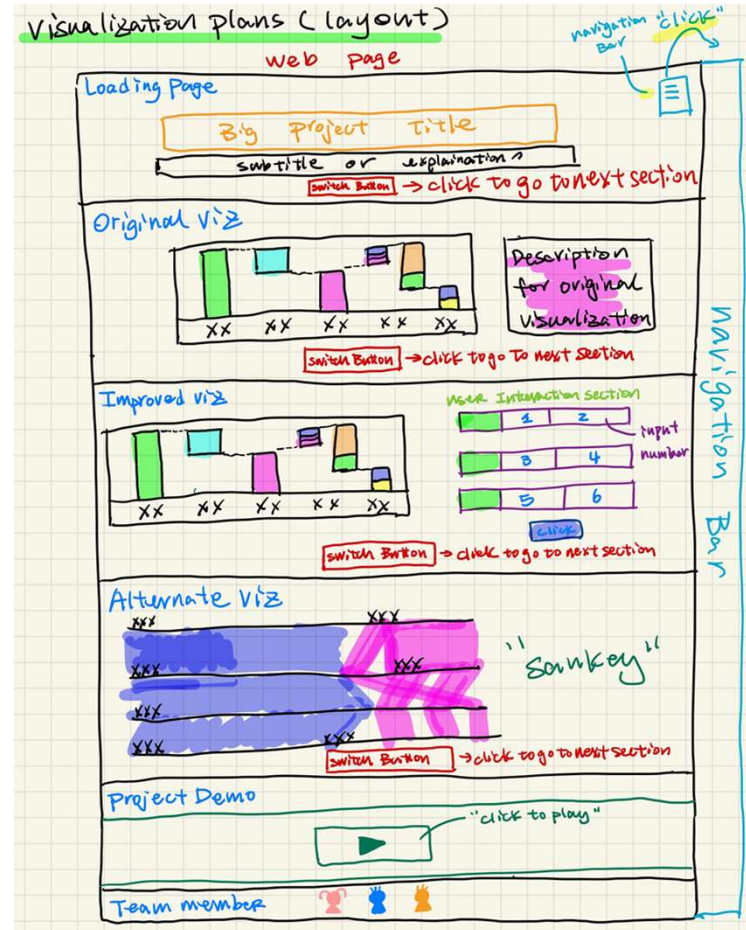 Visualization plans (layout)
navigation "click"
Bar
web page
Loading Page
Big project Title
subtitle or explainations
switch Button → click to go to next section
Original viz
Description
for original
visualization
XX XX XX XX XX
switch Button → click to go to next section
Improved viz
user Interaction section
1 2
input
number
3 4
5 6
XX XX XX XX XX
click
switch Button → click to go to next section
Alternate viz
XXX XXX
XXX XXX
"sankey"
XXX
XXX XXX
switch Button → click to go to next section
Project Demo
"click to play"
Team member
navigation Bar